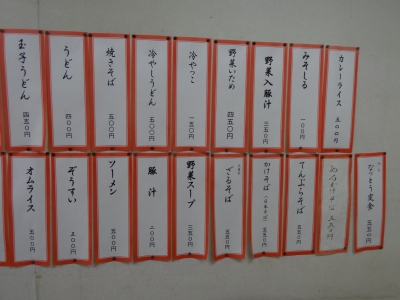 カレーライス 五〇〇円
みそしる 一〇〇円
野菜入豚汁 三五〇円
野菜いため 四五〇円
冷やっこ 一五〇円
冷やしうどん 五〇〇円
焼きそば 五〇〇円
うどん 四〇〇円
玉子うどん 四五〇円
なっとう定食 五五〇円
五五〇円
てんぷらそば 五五〇円
かけそば
ざるそば 五五〇円
野菜スープ 三五〇円
豚汁 二〇〇円
ソーメン 五〇〇円
ぞうすい 五〇〇円
オムライス 五〇〇円